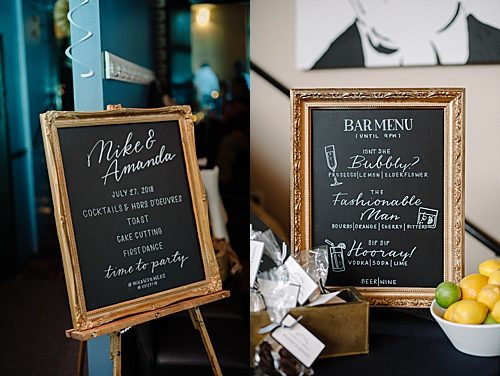 Mike &
Amanda
JULY 27, 2018
COCKTAILS & HORS D'OEUVRES
TOAST
CAKE CUTTING
FIRST DANCE
time to party
BAR MENU
(UNTIL 9PM)
ISN'T SHE
Bubbly?
PROSECCO|LEMON|ELDERFLOWER
THE
Fashionable
Man
BOURBON|ORANGE|CHERRY|BITTERS
SIP SIP
Hooray!
VODKA|SODA|LIME
BEER|WINE